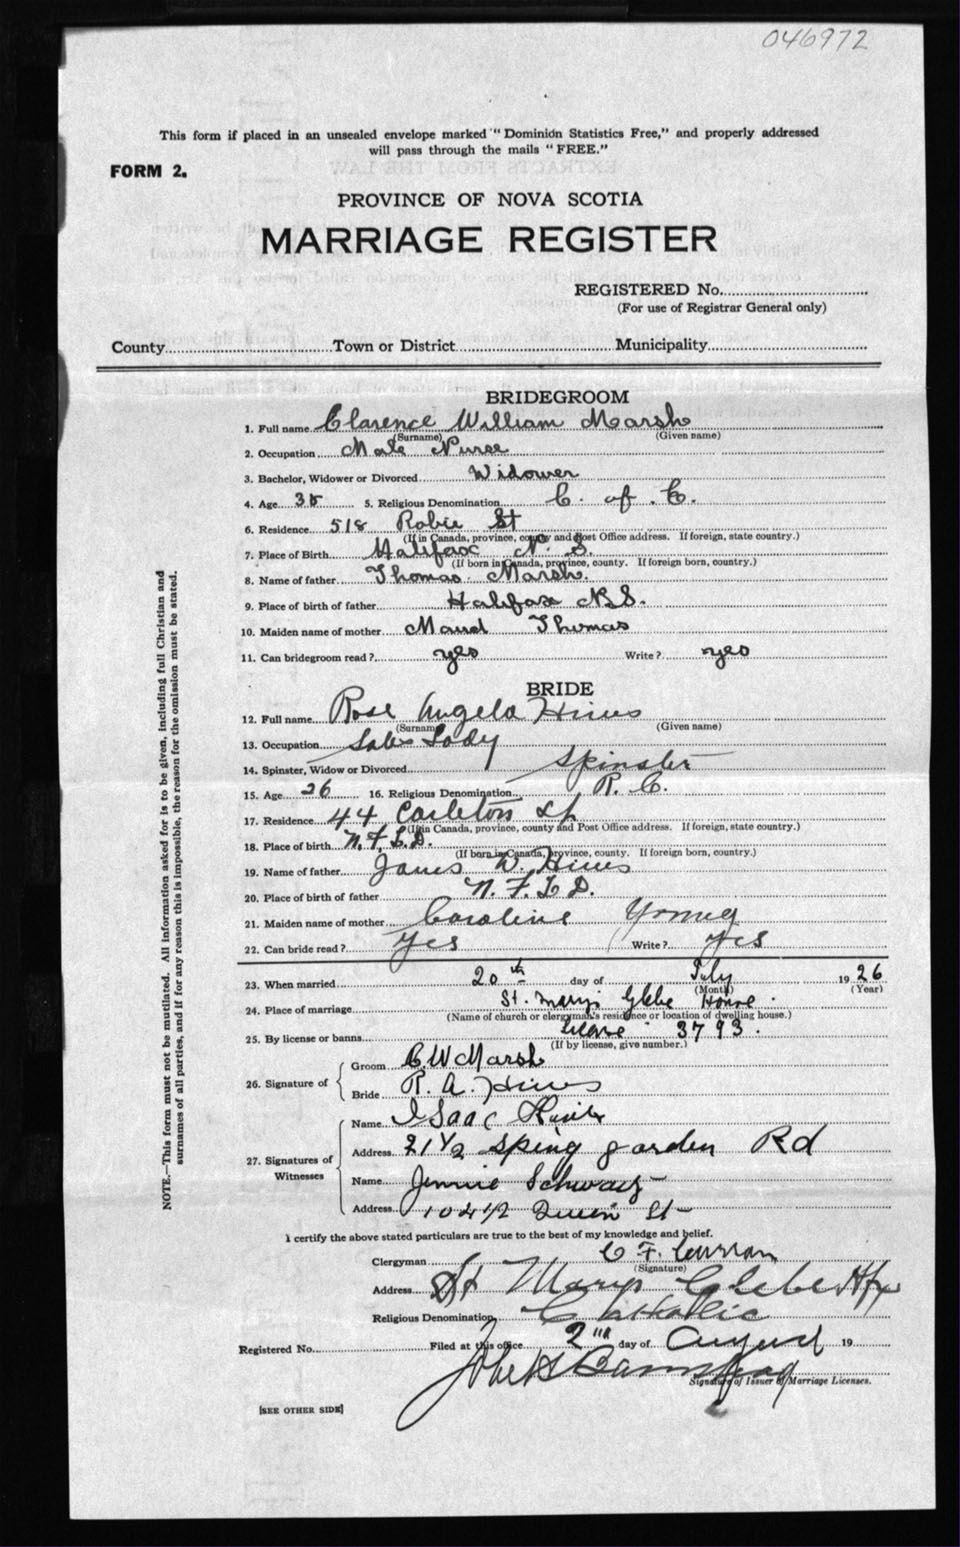 046972
This form if placed in an unsealed envelope marked "Dominion Statistics Free," and properly addressed
will pass through the mails "FREE."
FORM 2.
PROVINCE OF NOVA SCOTIA
MARRIAGE REGISTER
REGISTERED No.
(For use of Registrar General only)
County Town or District Municipality
BRIDEGROOM
1. Full name Clarence William Marsh
(Surname) (Given name)
2. Occupation Male Nurse
3. Bachelor, Widower or Divorced Widower
4. Age 35 5. Religious Denomination C. of E.
6. Residence 518 Robie St
(If in Canada, province, county and Post Office address. If foreign, state country.)
7. Place of Birth Halifax N. S.
(If born in Canada, province, county. If foreign born, country.)
8. Name of father Thomas Marsh.
9. Place of birth of father Halifax N.S.
10. Maiden name of mother Maud Thomas
11. Can bridegroom read? yes Write? yes
BRIDE
12. Full name Rose Angela Hines
(Surname) (Given name)
13. Occupation Sales Lady
14. Spinster, Widow or Divorced Spinster
15. Age 26 16. Religious Denomination R. C.
17. Residence 44 Carleton St
(If in Canada, province, county and Post Office address. If foreign, state country.)
18. Place of birth N.F.L.D.
(If born in Canada, province, county. If foreign born, country.)
19. Name of father James W. Hines
20. Place of birth of father N. F. L. D.
21. Maiden name of mother Caroline Young
22. Can bride read? Yes Write? Yes
23. When married 20th day of July 1926
(Month) (Year)
24. Place of marriage St. Mary's Glebe House.
(Name of church or clergyman's residence or location of dwelling house.)
25. By license or banns 3793.
(If by license, give number.)
26. Signature of
Groom C.W Marsh
Bride R. A. Hines
27. Signatures of Witnesses
Name Isaac
Address 21½ Spring garden Rd
Name Jennie Schwartz
Address 104½ Queen St
I certify the above stated particulars are true to the best of my knowledge and belief.
Clergyman C F. Curran
(Signature)
Address St Marys Glebe Hfx
Religious Denomination Catholic
Registered No. Filed at this office 2nd day of August 19
Signature of Issuer of Marriage Licenses.
[SEE OTHER SIDE]
NOTE.—This form must not be mutilated. All information asked for is to be given, including full Christian and
surnames of all parties, and if for any reason this is impossible, the reason for the omission must be stated.